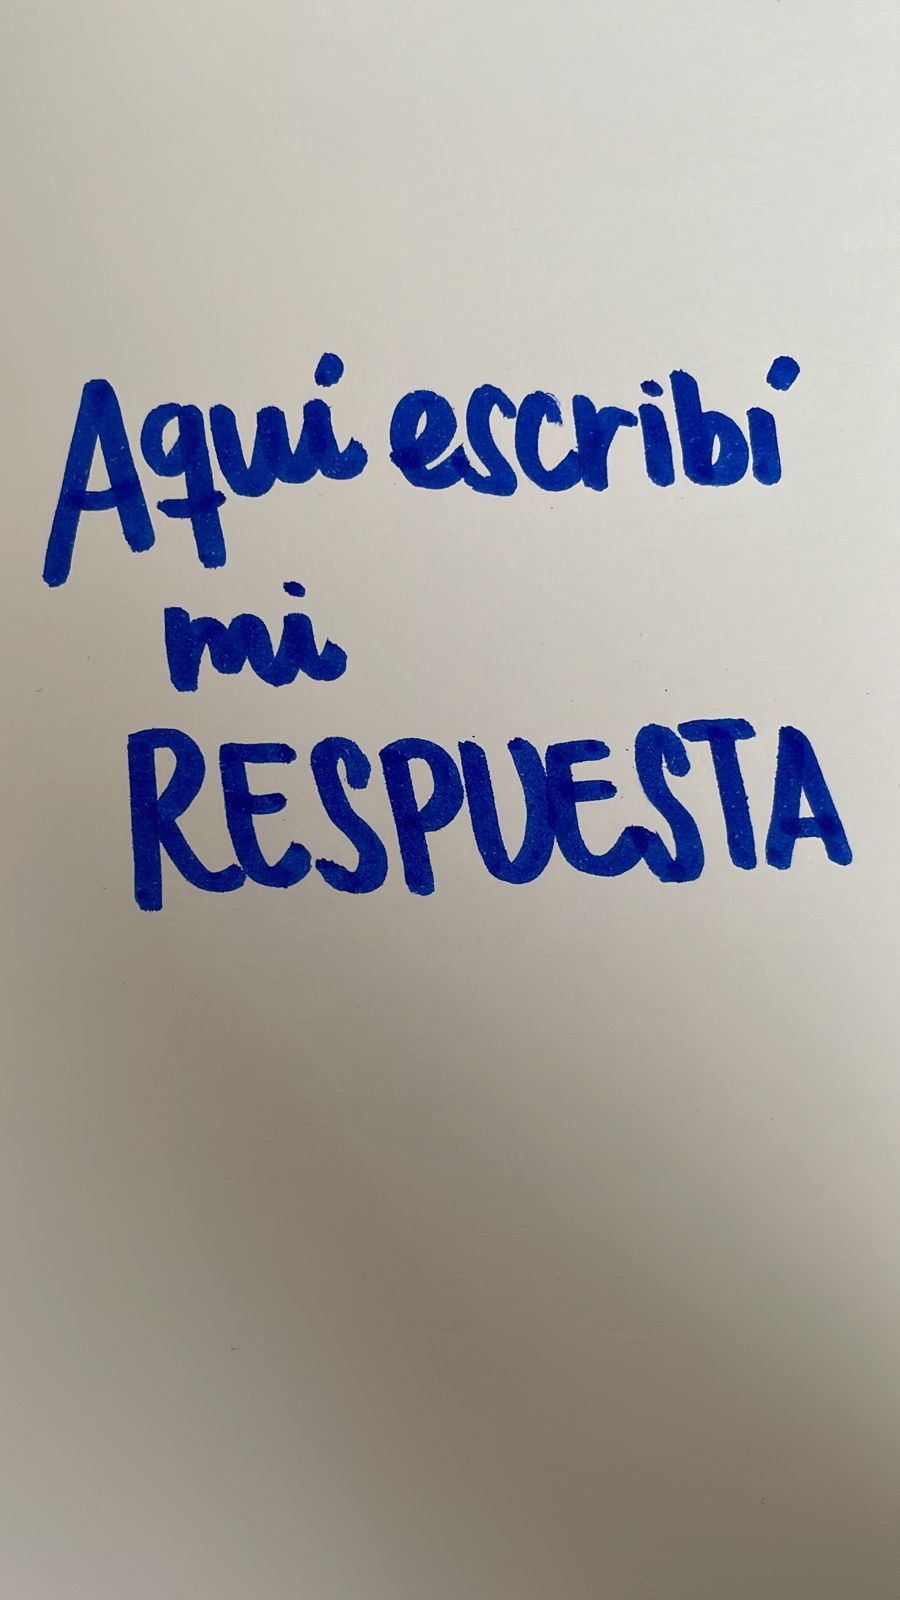 Aquí escribí
mi
RESPUESTA